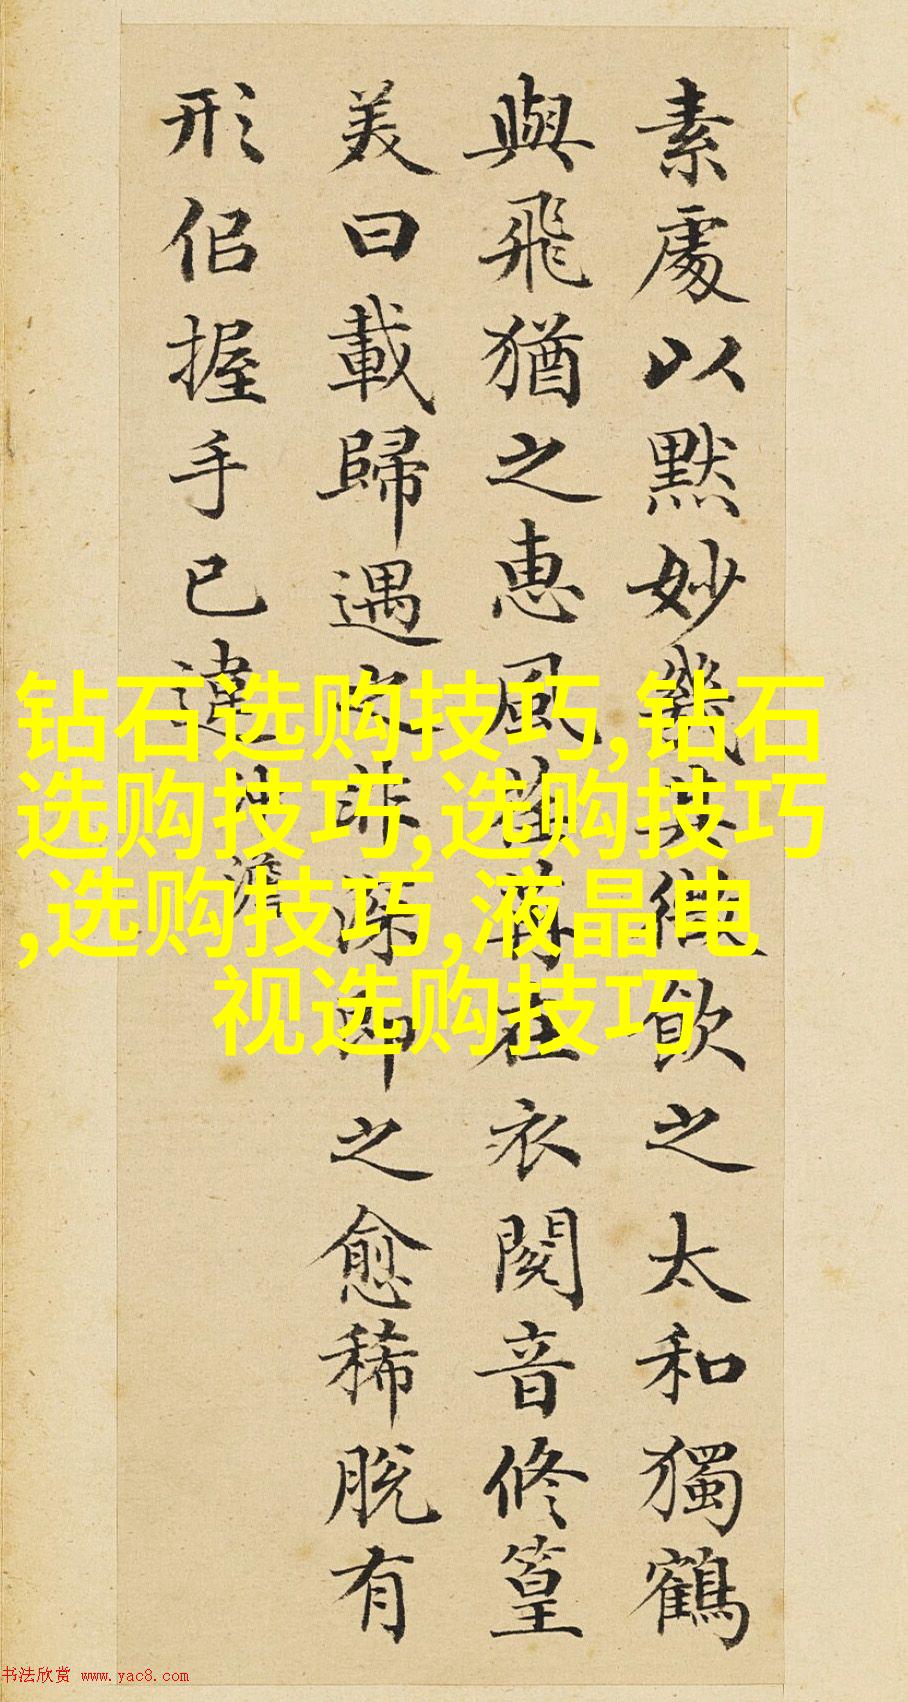 素處以默妙機其微飲之太和獨鶴
與飛猶之惠風荏苒在衣閱音修篁
美曰載歸遇之匪深即之愈稀脫有
形佀握手已違
沖澹
钻石选购技巧,钻石
选购技巧,选购技巧
,选购技巧,液晶电
视选购技巧
书法欣赏 www.yac8.com